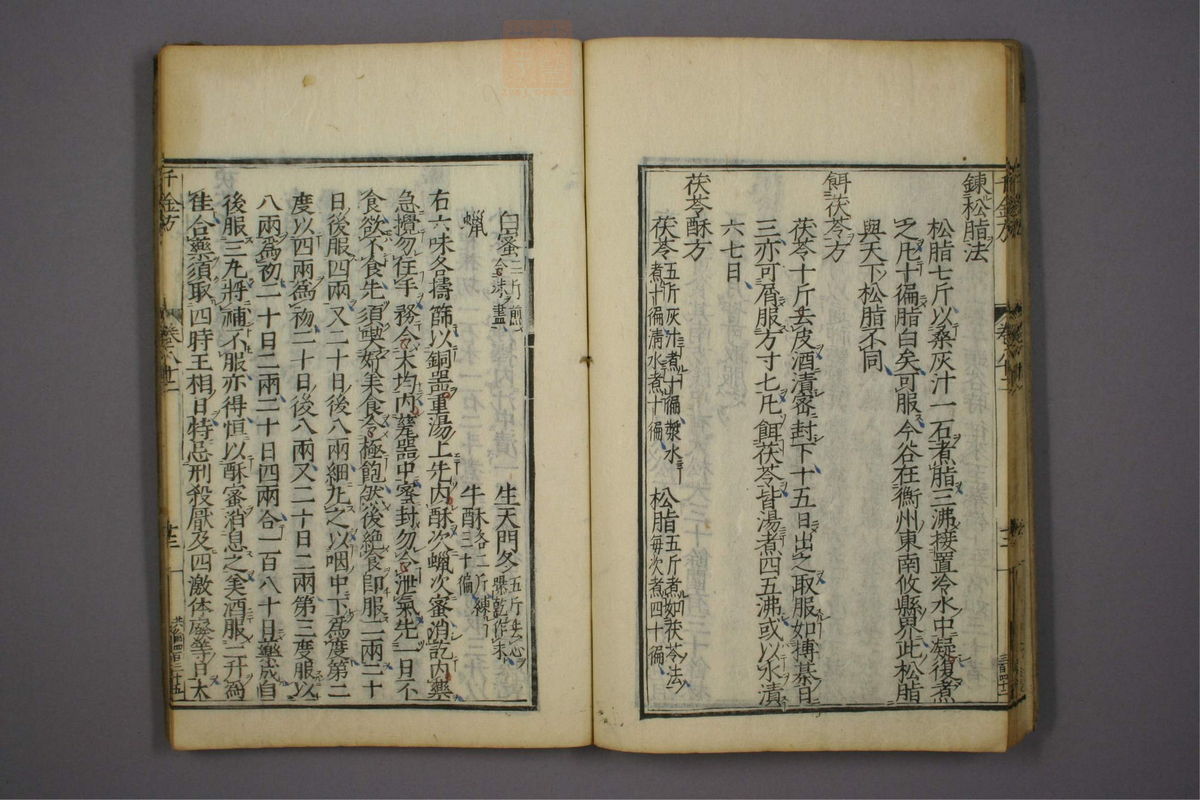 鍊松脂法
松脂七斤以桑灰汁一石煮脂三沸接置冷水中凝復煮
之凡十徧脂白矣可服今谷在衡州東南攸縣界此松脂
與天下松脂不同
餌茯苓方
茯苓十斤去皮酒漬密封下十五日出之取服如博棊日
三亦可屑服方寸七凡餌茯苓皆湯煮四五沸或以水漬
六七日
茯苓酥方
茯苓五斤灰汁煮十徧漿水煮十徧淸水煮十徧 松脂五斤煮如茯苓法每次煮四十徧
生天門冬五斤去心曝乾作末
白蜜三斤煎令沫盡 牛酥三斤練三十徧
蠟
右六味各擣篩以銅器重湯上先內酥次蠟次蜜消訖內藥
急攪勿住手務令大均內甆器中密封勿令泄氣先一日不
食欲不食先須喫好美食令極飽然後絶食卽服二兩二十
日後服四兩又二十日後八兩細丸之以咽中下爲度第二
度以四兩爲初二十日後八兩又二十日二兩第三度服以
八兩爲初二十日二兩二十日四兩合一百八十日藥成自
後服三丸將補不服亦得恒以酥蜜消息之美酒服一升爲
佳合藥須取四時王相日特忌刑殺厭及四激休廢等日大
千金方
卷八十二